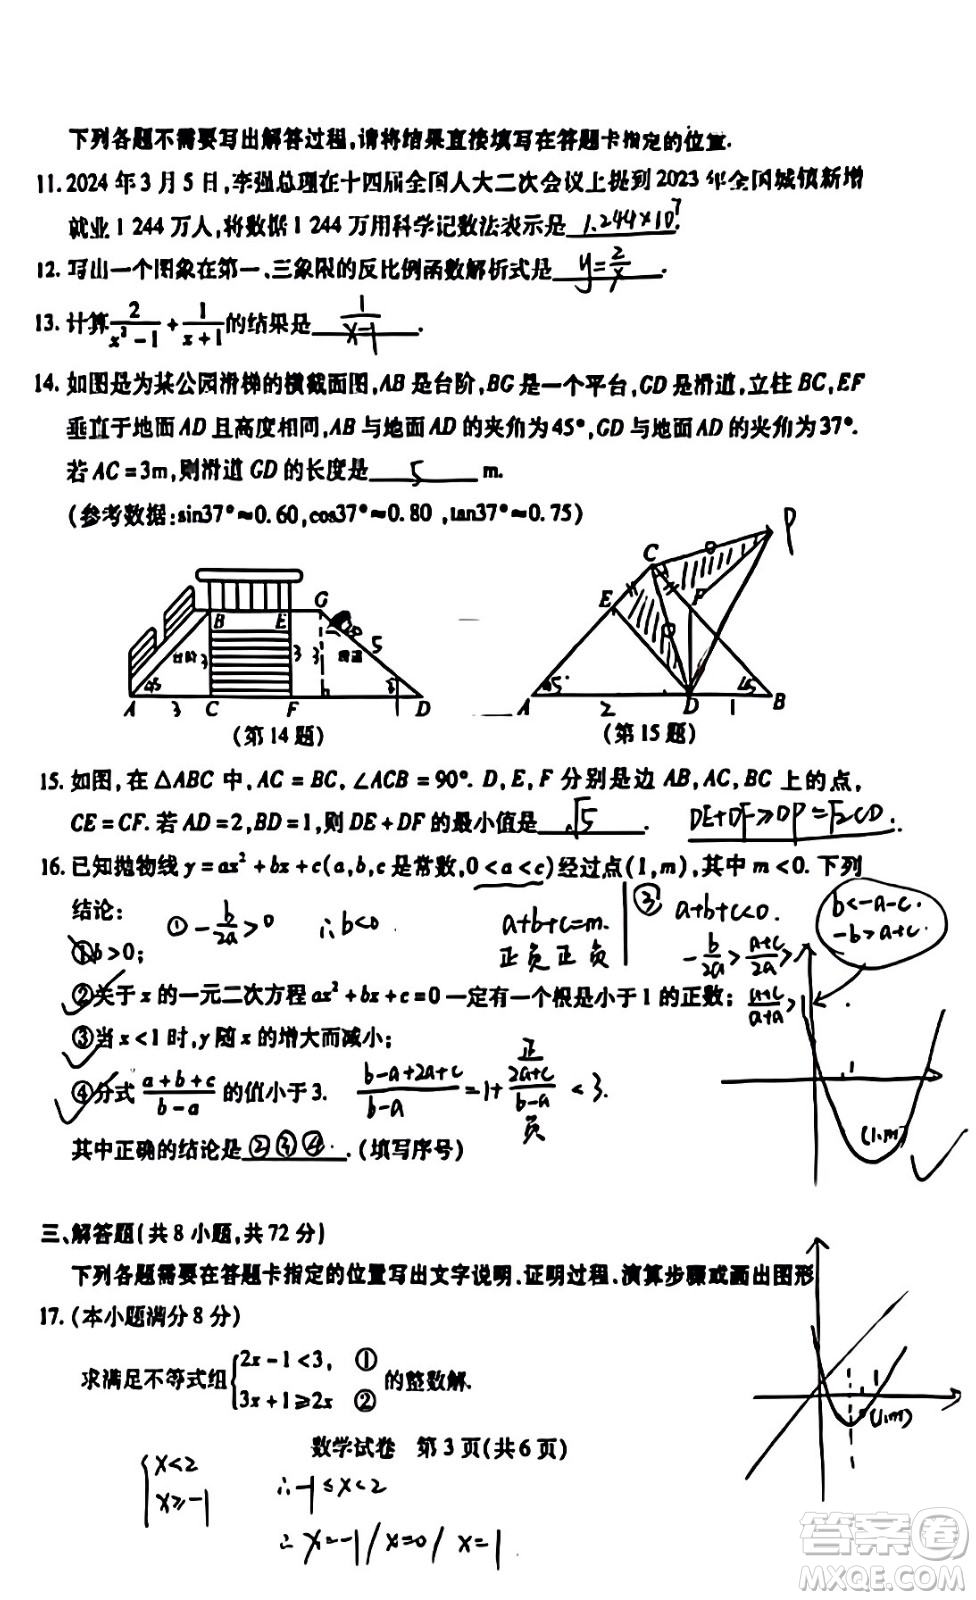 下列各题不需要写出解答过程,请将结果直接填写在答题卡指定的位置.
11. 2024 年 3 月 5 日,李强总理在十四届全国人大二次会议上提到 2023 年全国城镇新增
就业 1 244 万人,将数据 1 244 万用科学记数法表示是 1.244×10⁷.
12. 写出一个图象在第一、三象限的反比例函数解析式是 y=2/x .
13. 计算 2/(x²-1) + 1/(x+1) 的结果是 1/(x-1) .
14. 如图是为某公园滑梯的横截面图,AB 是台阶,BG 是一个平台,GD 是滑道,立柱 BC,EF
垂直于地面 AD 且高度相同,AB 与地面 AD 的夹角为45°,GD 与地面 AD 的夹角为 37°.
若 AC=3m,则滑道 GD 的长度是 5 m.
(参考数据:sin37°≈0.60,cos37°≈0.80 ,tan37°≈0.75)
P
C
G
E
F
B E
3 3 3 5
45°
A 3 C F D
45° 45°
A 2 D 1 B
(第 14 题)
(第 15 题)
15. 如图,在 △ABC 中,AC=BC,∠ACB=90°. D,E,F 分别是边 AB,AC,BC 上的点,
CE=CF. 若 AD=2,BD=1,则 DE+DF 的最小值是 √5 . DE+DF≥DP=√2CD.
16. 已知抛物线 y=ax²+bx+c(a,b,c 是常数,0<a<c)经过点(1,m),其中 m<0. 下列
结论: ① -b/2a>0 ∴b<0 a+b+c=m. ③ a+b+c<0. b<-a-c.
正 负 正 负 -b>a+c.
①b>0; -b/2a>(a+c)/2a>
②关于 x 的一元二次方程 ax²+bx+c=0 一定有一个根是小于 1 的正数; (a+c)/(a+a)>1
③当 x<1 时,y 随 x 的增大而减小;
④分式 (a+b+c)/(b-a) 的值小于 3. (b-a+2a+c)/(b-a)=1+(2a+c)/(b-a)<3.
正
负
1
(1,m)
其中正确的结论是 ②③④ .(填写序号)
三、解答题(共 8 小题,共 72 分)
下列各题需要在答题卡指定的位置写出文字说明、证明过程、演算步骤或画出图形
17. (本小题满分 8 分)
求满足不等式组{2x-1<3, ① 3x+1≥2x ② 的整数解.
1
(1,m)
数学试卷 第 3 页(共 6 页)
{x<2 x≥-1 ∴-1≤x<2
∴x=-1/x=0/x=1
答案圈
MXQE.COM